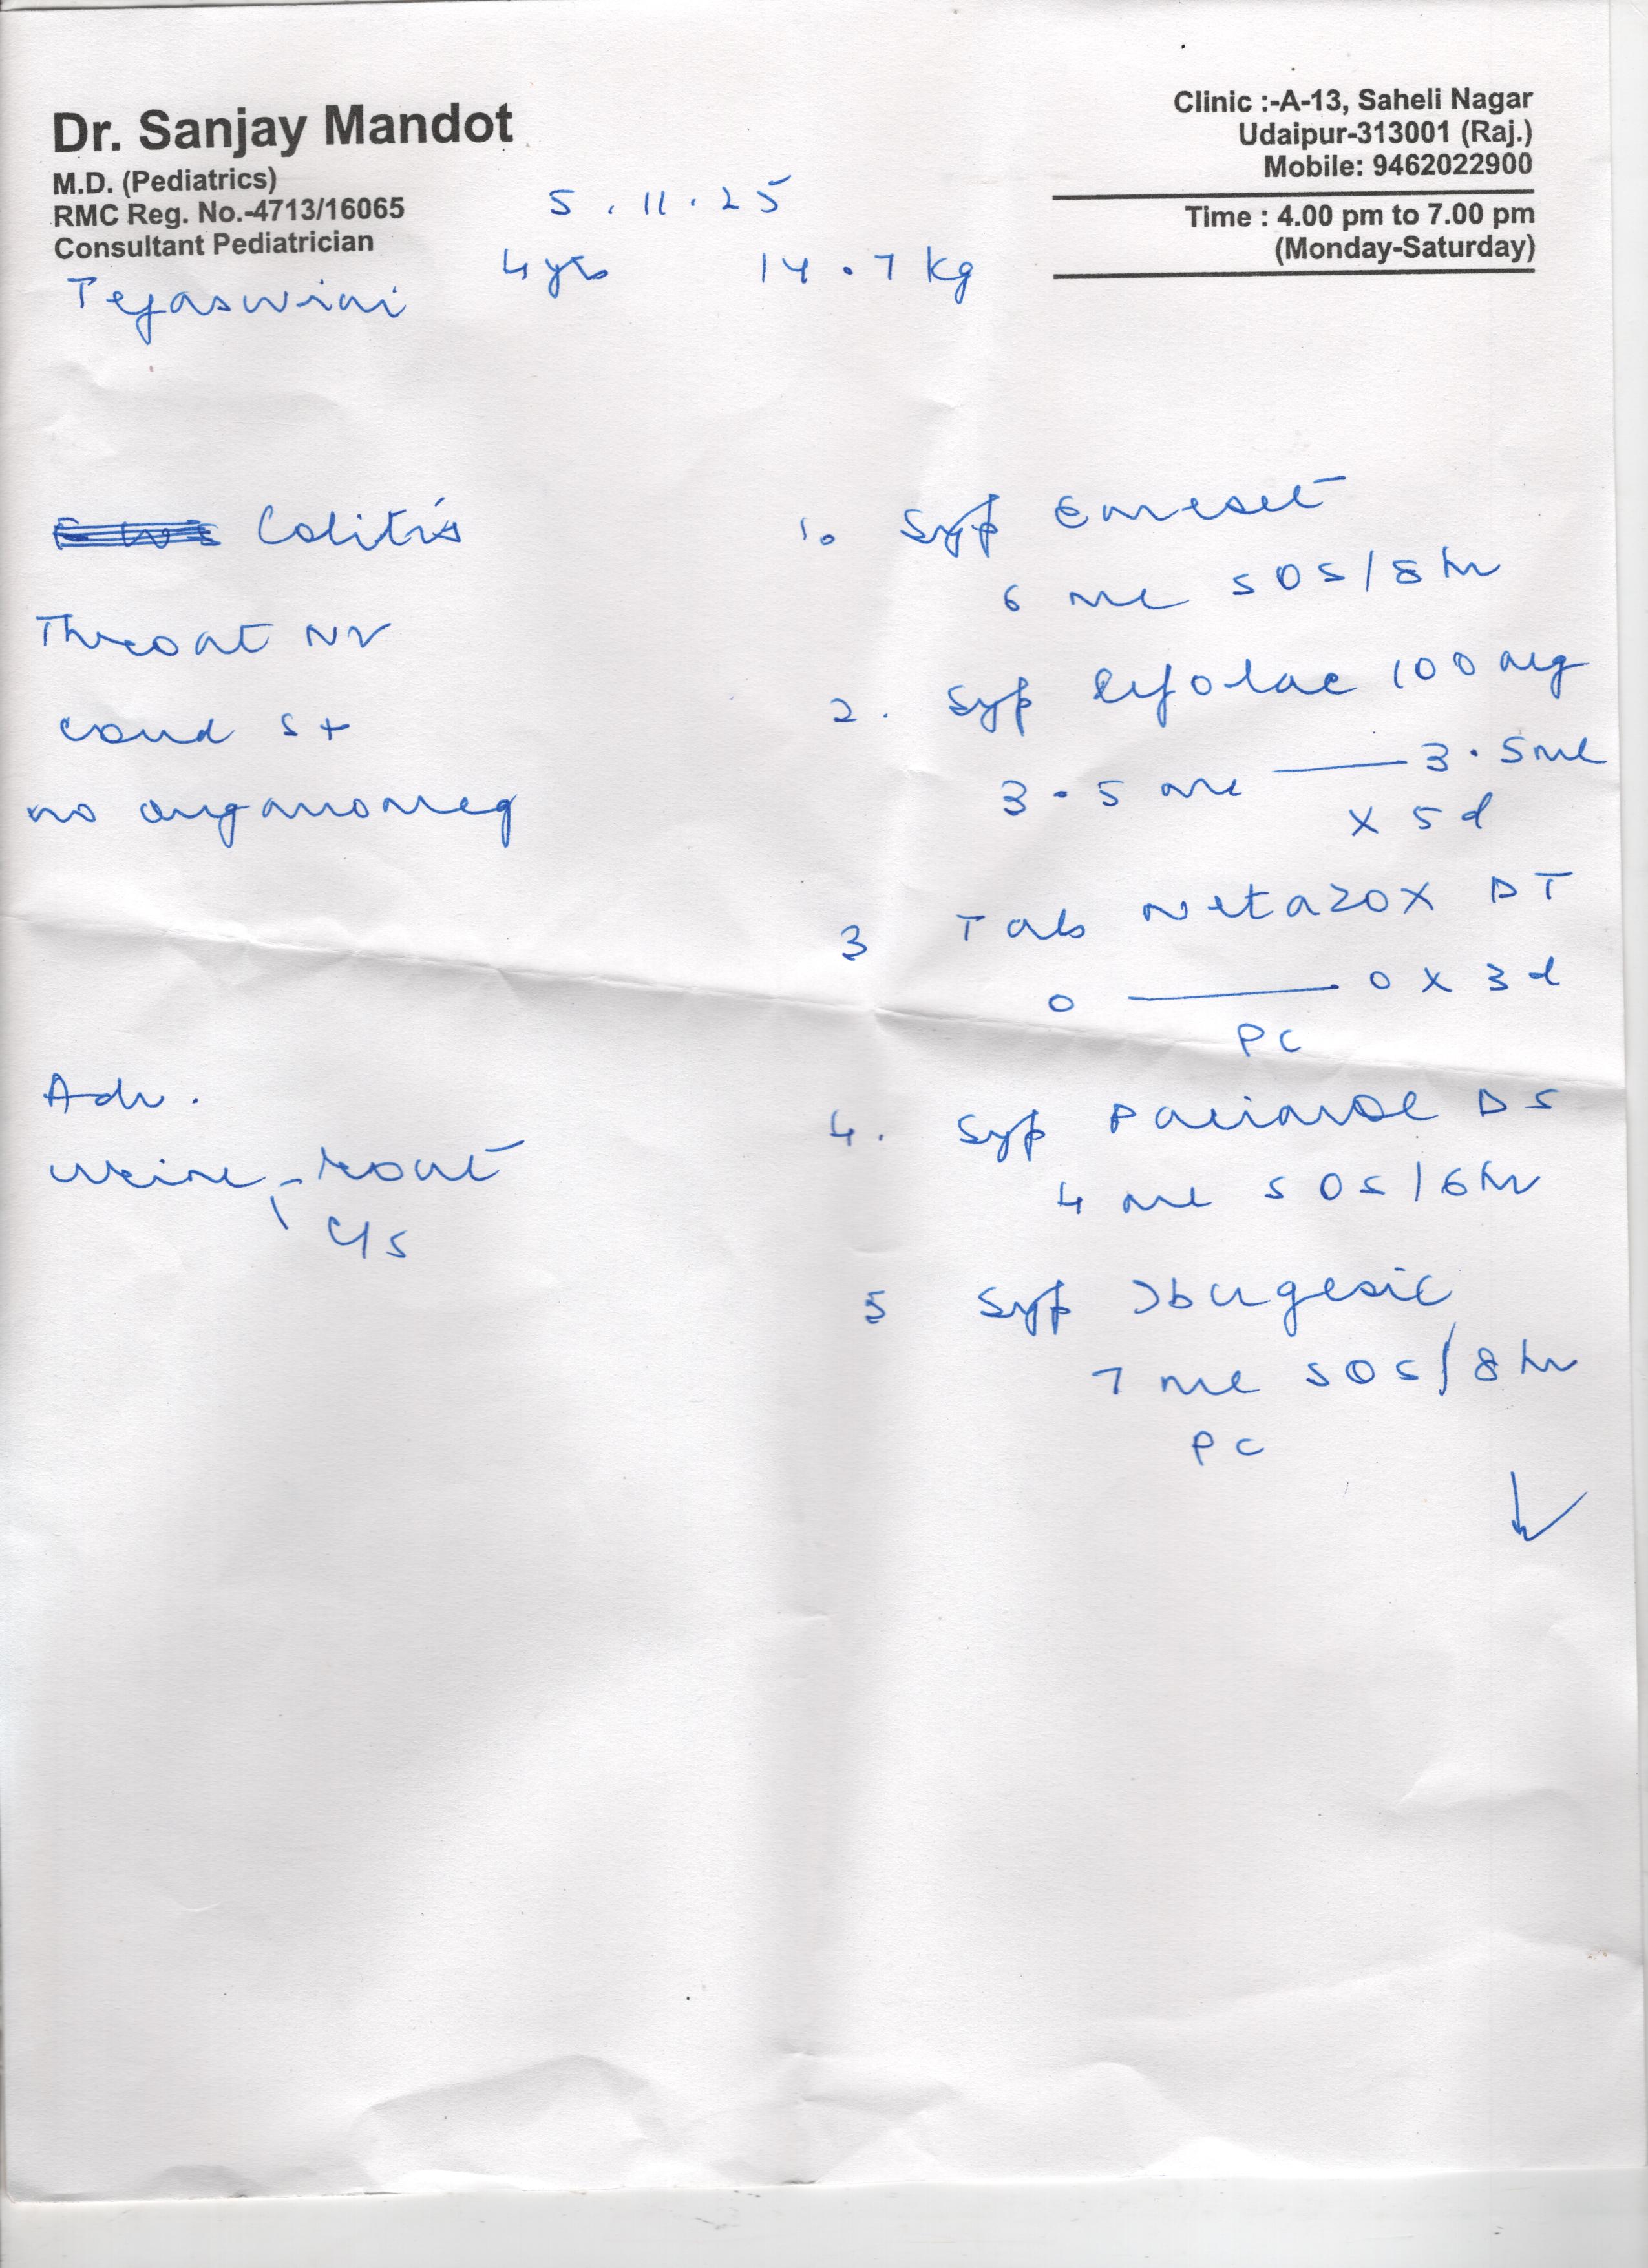 Dr. Sanjay Mandot
M.D. (Pediatrics)
RMC Reg. No.-4713/16065
Consultant Pediatrician
Clinic :-A-13, Saheli Nagar
Udaipur-313001 (Raj.)
Mobile: 9462022900
Time : 4.00 pm to 7.00 pm
(Monday-Saturday)
5.11.25
Tejaswini 4 yrs 14.7 kg
Colitis
Throat
no organomeg
Adv.
Urine - rout
C/s
1. Syp Emeset
6 ml SOS/8 hr
2. Syp 100 mg
3.5 ml — 3.5 ml
x 5 d
3 Tab Netazox DT
0 — 0 x 3 d
PC
4. Syp Pacimol DS
4 ml SOS/6 hr
5 Syp Ibugesic
7 ml SOS/8 hr
PC